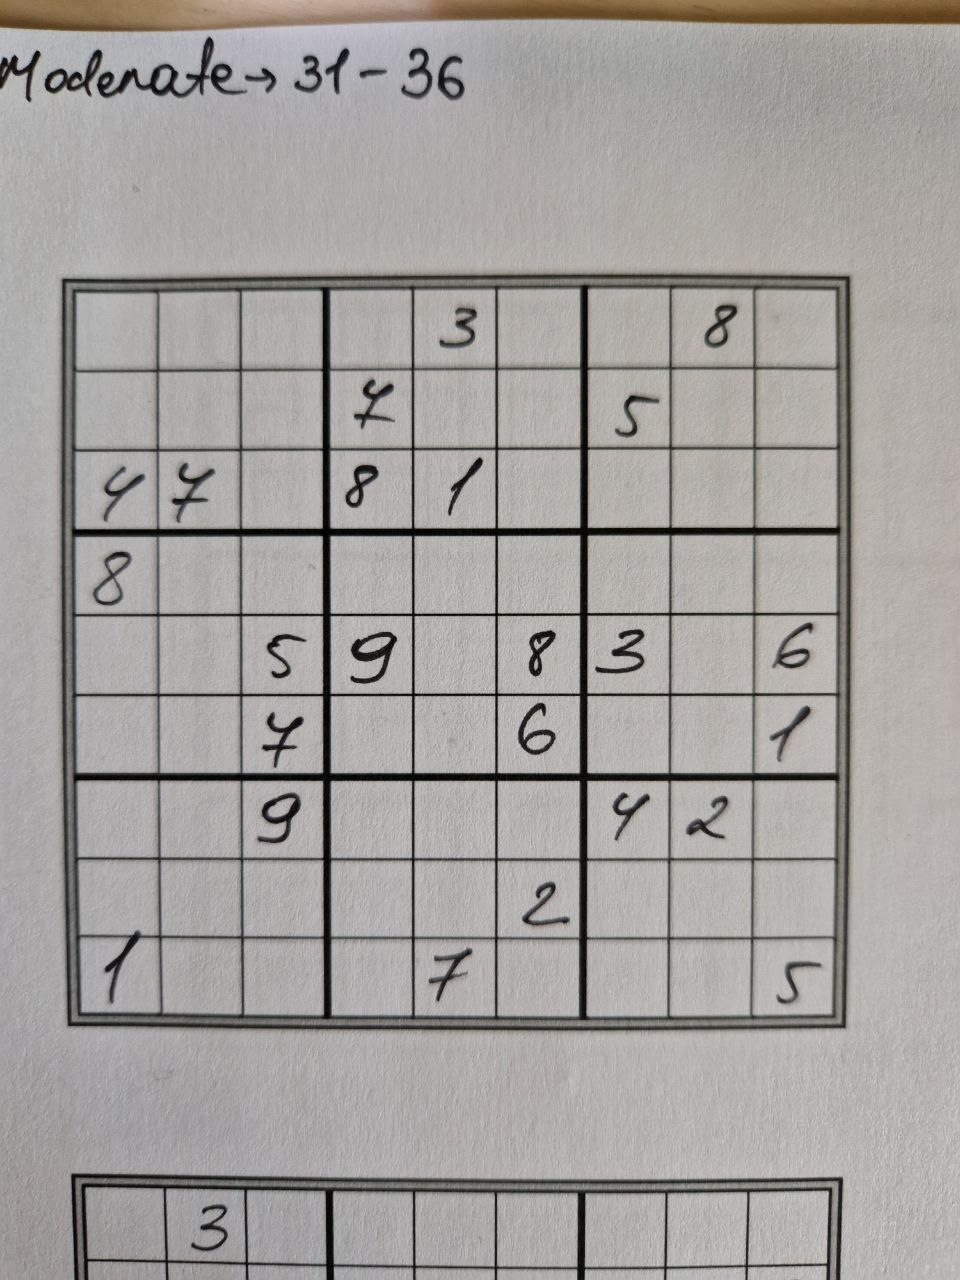 Moderate → 31 - 36
3 8
7 5
4 7 8 1
8
5 9 8 3 6
7 6 1
9 4 2
2
1 7 5
3